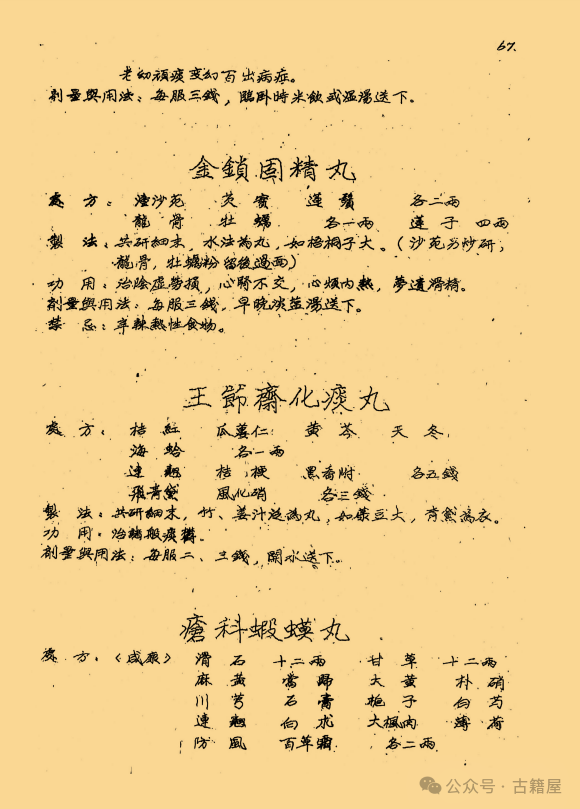 67.
老幼頑痰变幻百出病症。
剂量與用法：每服三錢，臨卧時米飲或温湯送下。
金鎖固精丸
處 方：潼沙苑 芡實 蓮鬚 各二兩
龍骨 牡蠣 各一兩 蓮子 四兩
製 法：共研細末，水泛為丸，如梧桐子大。（沙苑另炒研，
龍骨，牡蠣粉 後過西）
功 用：治陰虛勞損，心腎不交，心煩内熱，夢遺滑精。
剂量與用法：每服三錢，早晚淡盐湯送下。
禁 忌：辛辣熱性食物。
王節齋化痰丸
處 方：桔紅 瓜蔞仁 黄芩 天冬
海蛤 各一兩
連翹 桔梗 黑香附 各五錢
飛青黛 風化硝 各三錢
製 法：共研細末，竹、姜汁泛為丸，如菉豆大，青黛為衣。
功 用：治 般痰
剂量與用法：每服二、三錢，開水送下。
瘡科蝦蟆丸
處 方：〈成張〉 滑石 十二兩 甘草 十二兩
麻黄 當歸 大黄 朴硝
川芎 石膏 梔子 白芍
連翹 白朮 大楓肉 薄荷
防風 百草霜 各二兩
公众号·古籍屋